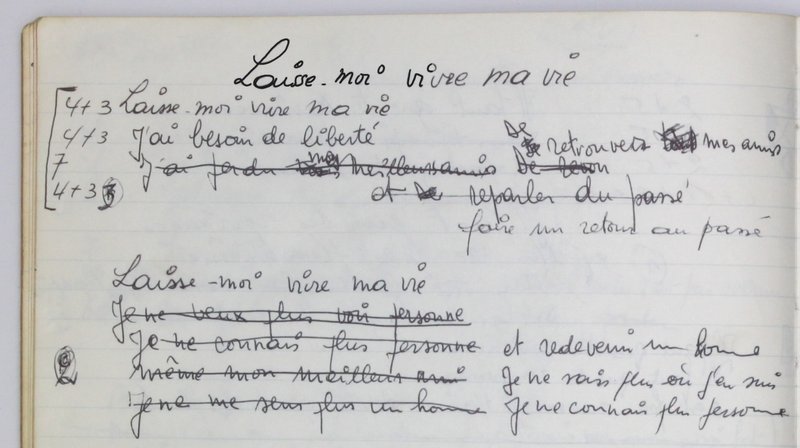 Laisse-moi vivre ma vie
4+3 Laisse-moi vivre ma vie
4+3 J'ai besoin de liberté
De retrouver mes amis
7 J'ai perdu mes meilleurs amis
4+3 et reparler du passé
faire un retour au passé
Laisse-moi vivre ma vie
Je ne veux plus voir personne
Je ne connais plus personne et redevenir un homme
même mon meilleur ami Je ne sais plus où j'en suis
Je ne me sens plus un homme Je ne connais plus personne